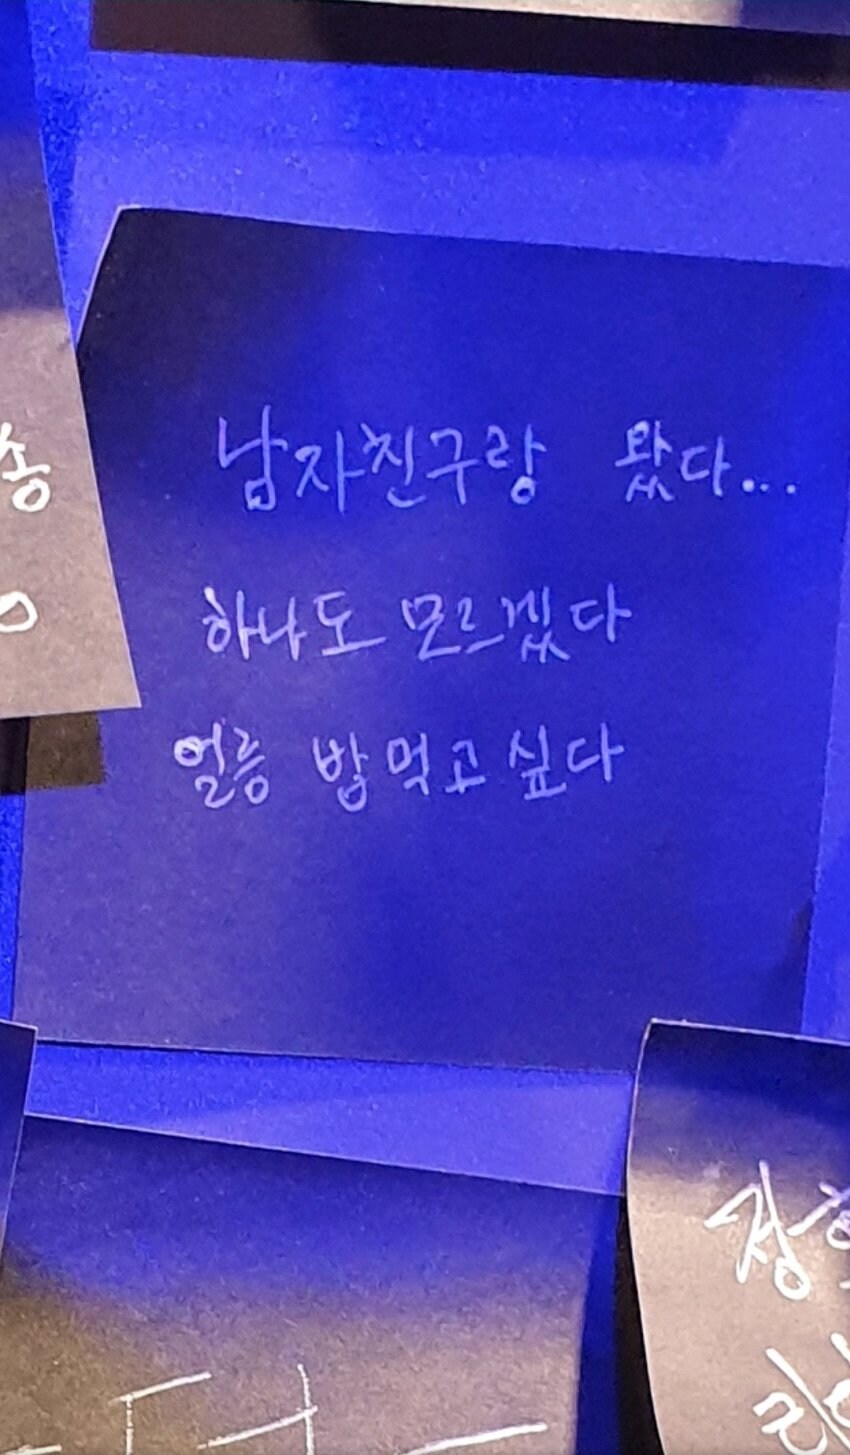 남자친구랑 왔다...
하나도 모르겠다
얼릉 밥먹고싶다
송
정